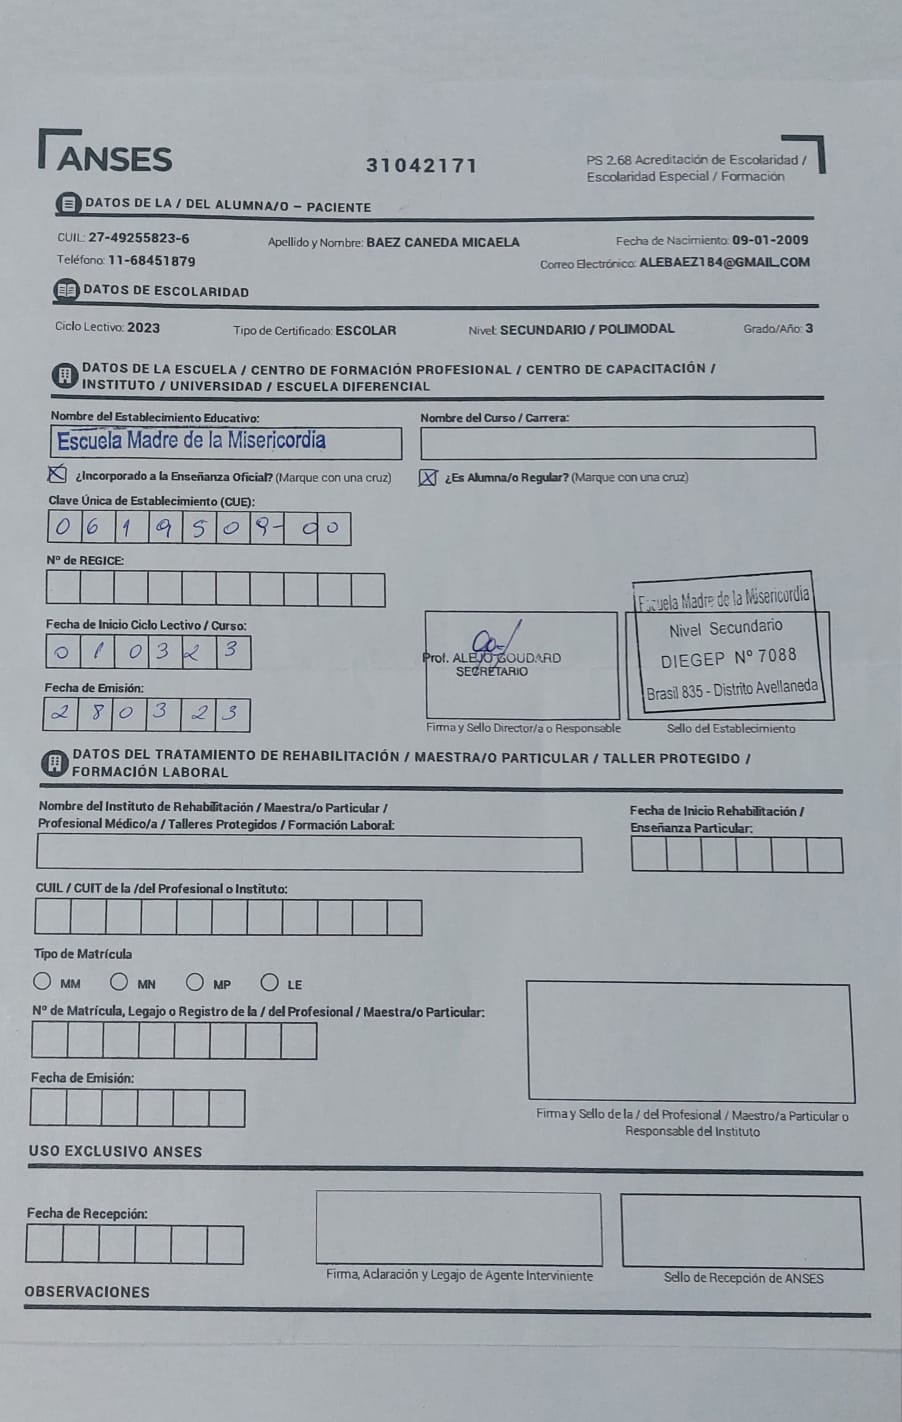 ANSES
31042171
PS 2.68 Acreditación de Escolaridad /
Escolaridad Especial / Formación
DATOS DE LA / DEL ALUMNA/O - PACIENTE
CUIL: 27-49255823-6 Apellido y Nombre: BAEZ CANEDA MICAELA Fecha de Nacimiento: 09-01-2009
Teléfono: 11-68451879 Correo Electrónico: ALEBAEZ184@GMAIL.COM
DATOS DE ESCOLARIDAD
Ciclo Lectivo: 2023 Tipo de Certificado: ESCOLAR Nivel: SECUNDARIO / POLIMODAL Grado/Año: 3
DATOS DE LA ESCUELA / CENTRO DE FORMACIÓN PROFESIONAL / CENTRO DE CAPACITACIÓN /
INSTITUTO / UNIVERSIDAD / ESCUELA DIFERENCIAL
Nombre del Establecimiento Educativo: Nombre del Curso / Carrera:
Escuela Madre de la Misericordia
X ¿Incorporado a la Enseñanza Oficial? (Marque con una cruz) X ¿Es Alumna/o Regular? (Marque con una cruz)
Clave Única de Establecimiento (CUE):
0 6 1 9 5 0 9- 00
Nº de REGICE:
Fecha de Inicio Ciclo Lectivo / Curso:
0 1 0 3 2 3
Fecha de Emisión:
2 8 0 3 2 3
Prof. ALEJO GOUDARD
SECRETARIO
Firma y Sello Director/a o Responsable
Escuela Madre de la Misericordia
Nivel Secundario
DIEGEP Nº 7088
Brasil 835 - Distrito Avellaneda
Sello del Establecimiento
DATOS DEL TRATAMIENTO DE REHABILITACIÓN / MAESTRA/O PARTICULAR / TALLER PROTEGIDO /
FORMACIÓN LABORAL
Nombre del Instituto de Rehabilitación / Maestra/o Particular /
Profesional Médico/a / Talleres Protegidos / Formación Laboral:
Fecha de Inicio Rehabilitación /
Enseñanza Particular:
CUIL / CUIT de la /del Profesional o Instituto:
Tipo de Matrícula
MM MN MP LE
Nº de Matrícula, Legajo o Registro de la / del Profesional / Maestra/o Particular:
Fecha de Emisión:
Firma y Sello de la / del Profesional / Maestro/a Particular o
Responsable del Instituto
USO EXCLUSIVO ANSES
Fecha de Recepción:
Firma, Aclaración y Legajo de Agente Interviniente
Sello de Recepción de ANSES
OBSERVACIONES